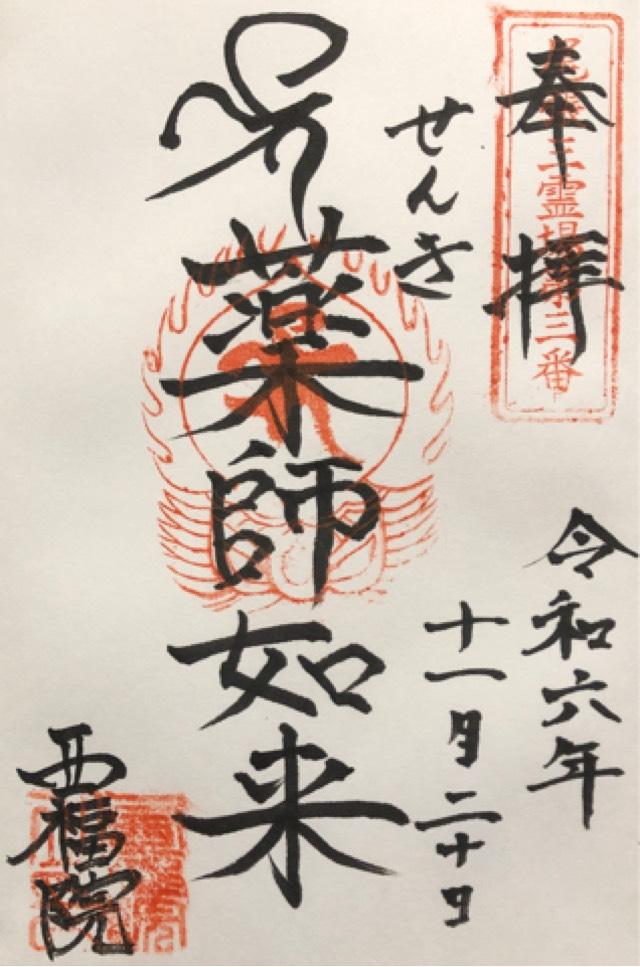 奉拝
三霊場第三番
令和六年
十一月二十日
せんき
薬師如来
西福院